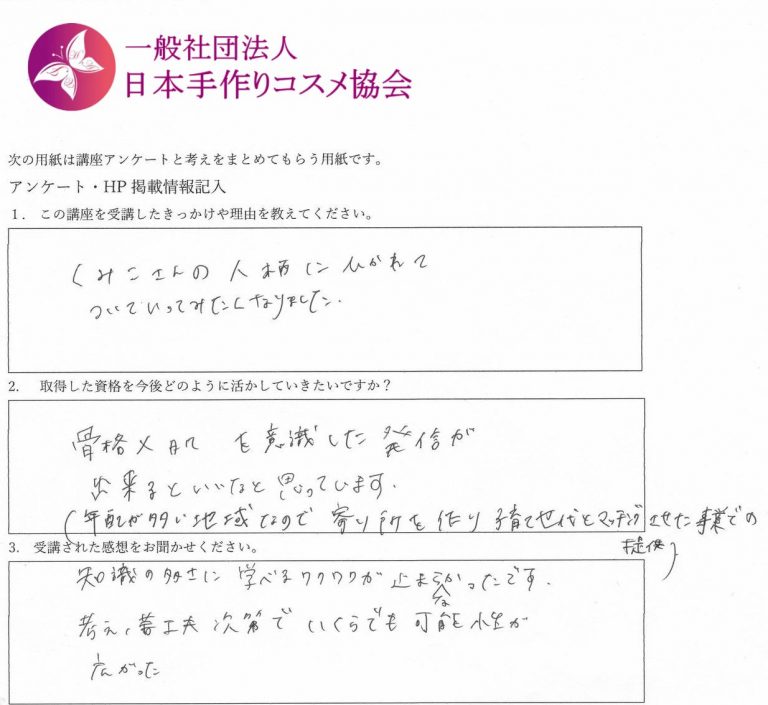 一般社団法人
日本手作りコスメ協会
次の用紙は講座アンケートと考えをまとめてもらう用紙です。
アンケート・HP 掲載情報記入
1. この講座を受講したきっかけや理由を教えてください。
くみこさんの人柄にひかれて
ついていってみたくなりました.
2. 取得した資格を今後どのように活かしていきたいですか？
骨格×肌 を意識した発信が
出来るといいなと思っています.
(年配が多い地域なので 寄り所を作り 子育て世代とマッチングさせた事業での
提供)
3. 受講された感想をお聞かせください。
知識の多さに 学べるワクワクが 止まらなかったです.
考え、工夫次第で いくらでも可能性が
広がった